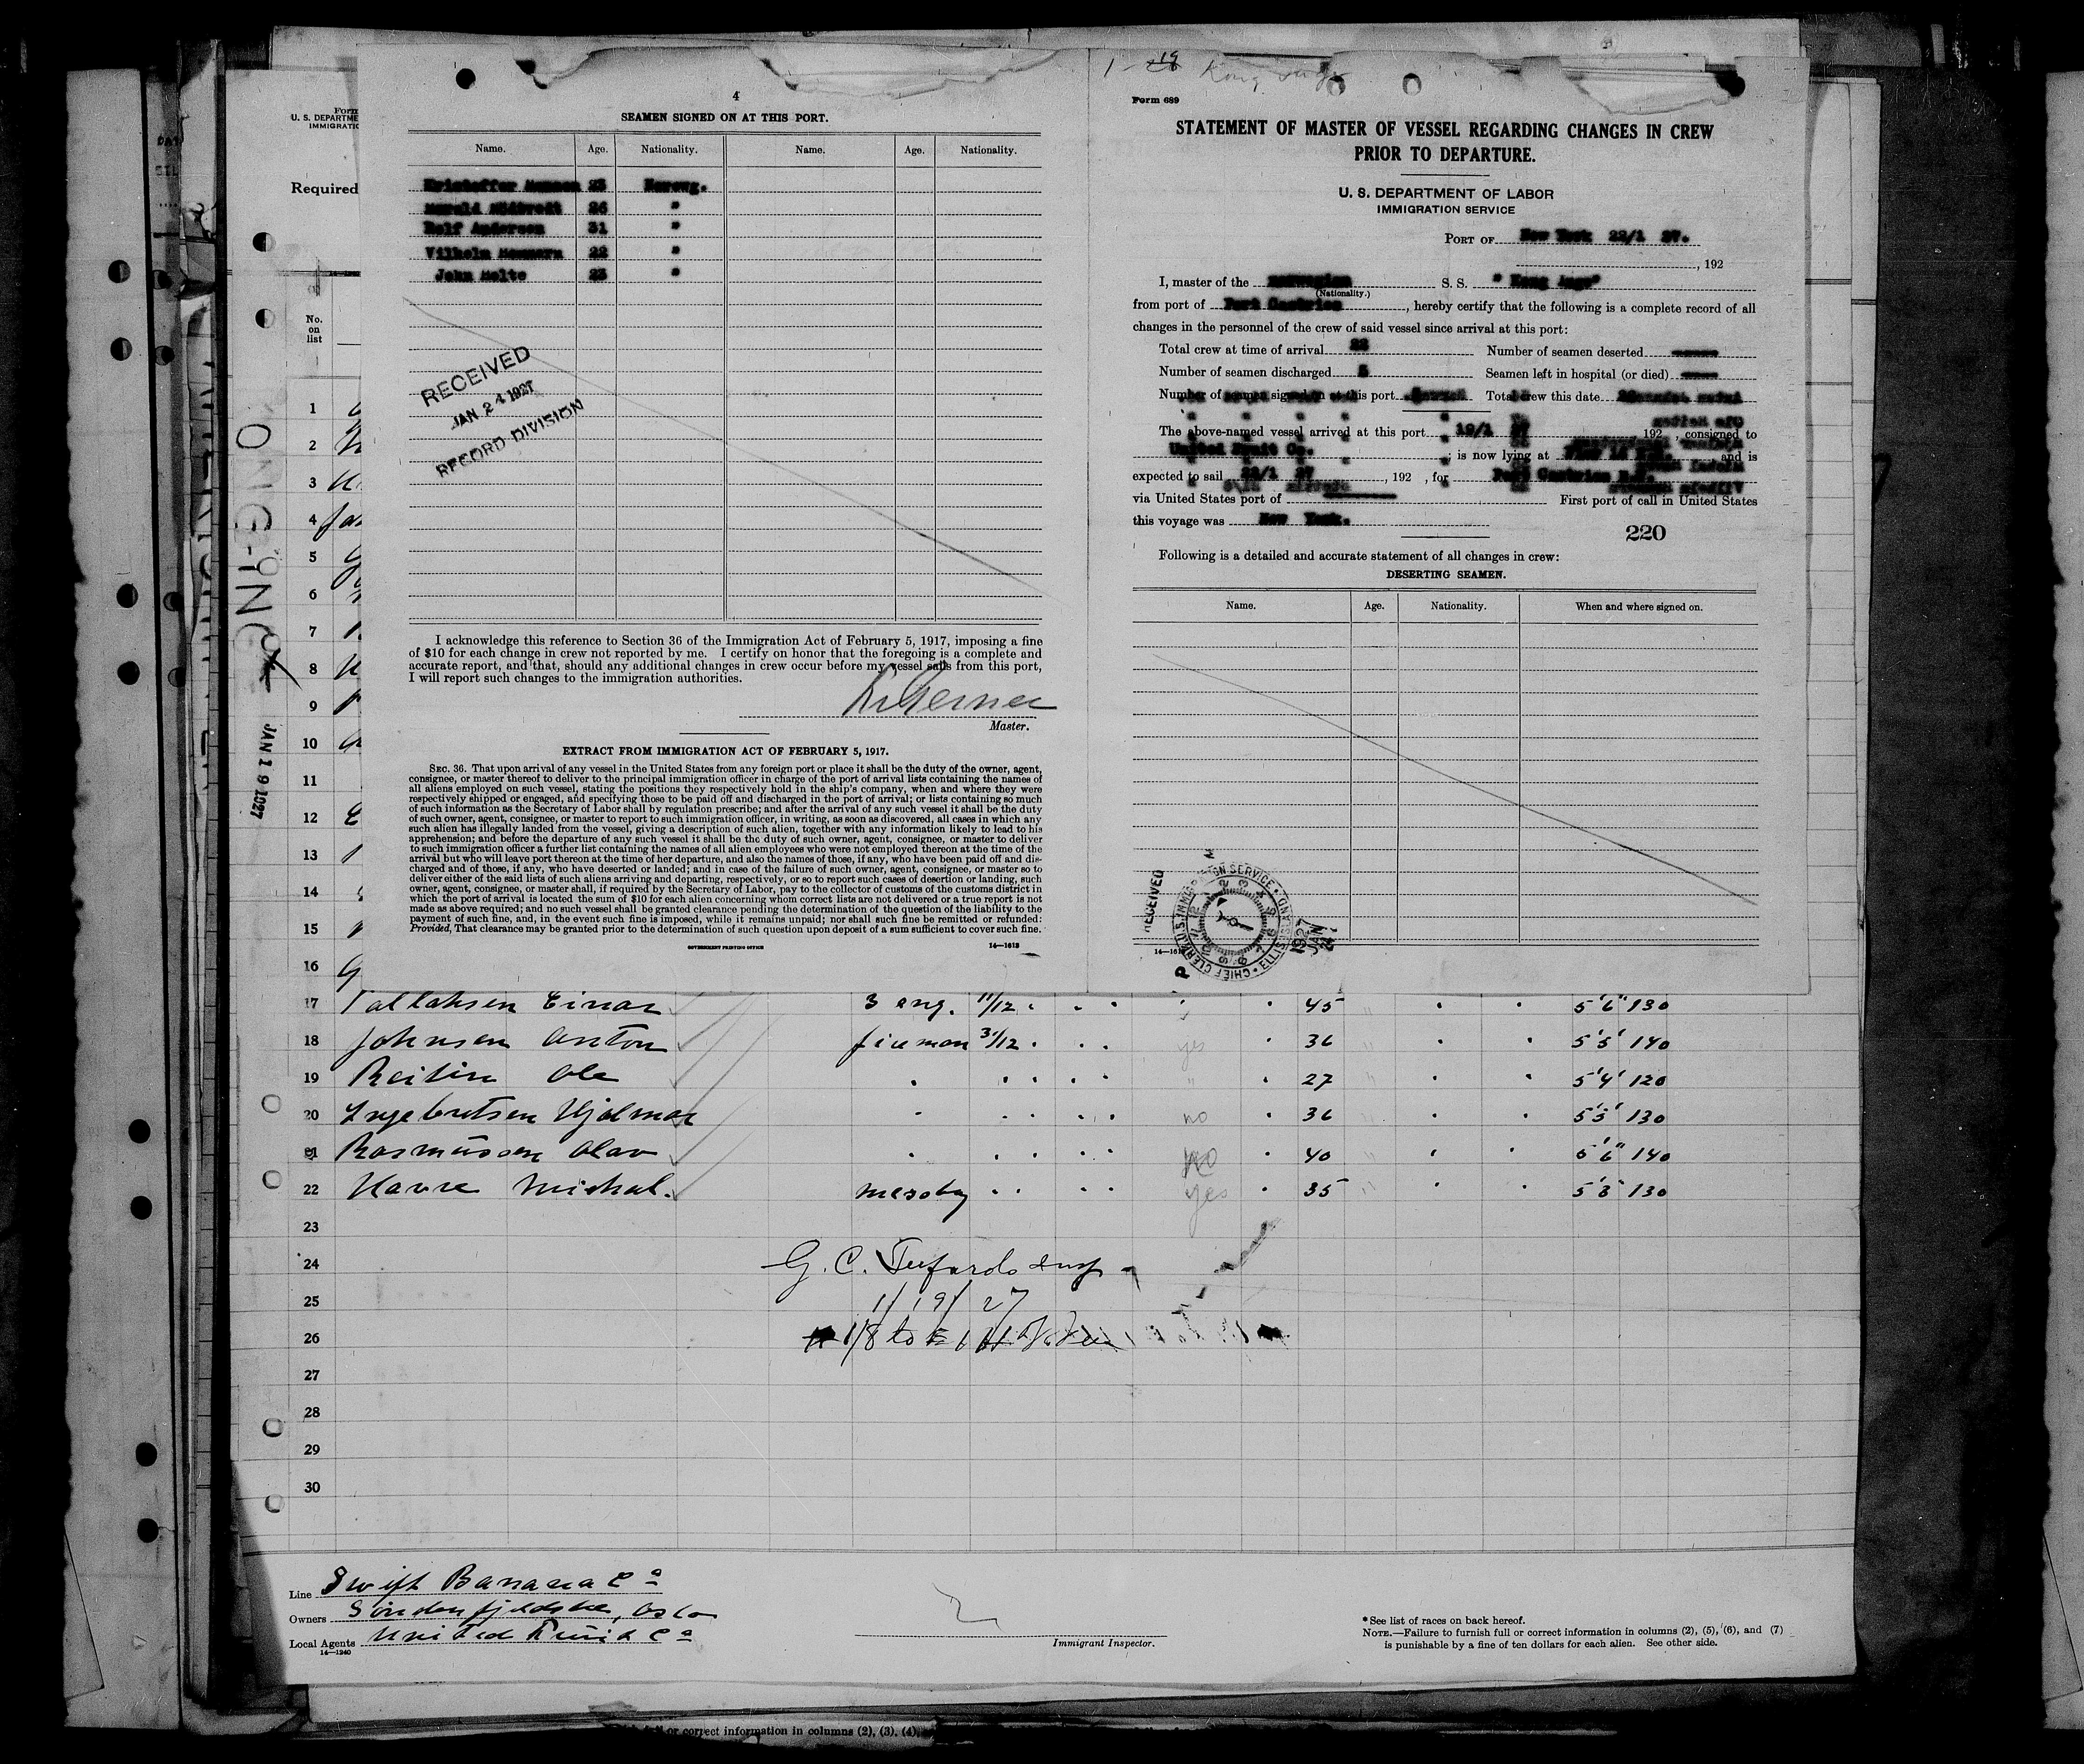 4
SEAMEN SIGNED ON AT THIS PORT.
Name. Age. Nationality. Name. Age. Nationality.
Kristoffer 23 Norweg.
Harald 26 "
Rolf Andersen 31 "
Vilhelm 22 "
John Molte 23 "
RECEIVED
JAN 24 1927
RECORD DIVISION
I acknowledge this reference to Section 36 of the Immigration Act of February 5, 1917, imposing a fine
of $10 for each change in crew not reported by me. I certify on honor that the foregoing is a complete and
accurate report, and that, should any additional changes in crew occur before my vessel sails from this port,
I will report such changes to the immigration authorities.
Master.
EXTRACT FROM IMMIGRATION ACT OF FEBRUARY 5, 1917.
SEC. 36. That upon arrival of any vessel in the United States from any foreign port or place it shall be the duty of the owner, agent,
consignee, or master thereof to deliver to the principal immigration officer in charge of the port of arrival lists containing the names of
all aliens employed on such vessel, stating the positions they respectively hold in the ship's company, when and where they were
respectively shipped or engaged, and specifying those to be paid off and discharged in the port of arrival; or lists containing so much
of such information as the Secretary of Labor shall by regulation prescribe; and after the arrival of any such vessel it shall be the duty
of such owner, agent, consignee, or master to report to such immigration officer, in writing, as soon as discovered, all cases in which any
such alien has illegally landed from the vessel, giving a description of such alien, together with any information likely to lead to his
apprehension; and before the departure of any such vessel it shall be the duty of such owner, agent, consignee, or master to deliver
to such immigration officer a further list containing the names of all alien employees who were not employed thereon at the time of the
arrival but who will leave port thereon at the time of her departure, and also the names of those, if any, who have been paid off and dis-
charged and of those, if any, who have deserted or landed; and in case of the failure of such owner, agent, consignee, or master so to
deliver either of the said lists of such aliens arriving and departing, respectively, or so to report such cases of desertion or landing, such
owner, agent, consignee, or master shall, if required by the Secretary of Labor, pay to the collector of customs of the customs district in
which the port of arrival is located the sum of $10 for each alien concerning whom correct lists are not delivered or a true report is not
made as above required; and no such vessel shall be granted clearance pending the determination of the question of the liability to the
payment of such fine, and, in the event such fine is imposed, while it remains unpaid; nor shall such fine be remitted or refunded:
Provided, That clearance may be granted prior to the determination of such question upon deposit of a sum sufficient to cover such fine.
GOVERNMENT PRINTING OFFICE 14—1613
Form 689
STATEMENT OF MASTER OF VESSEL REGARDING CHANGES IN CREW
PRIOR TO DEPARTURE.
U. S. DEPARTMENT OF LABOR
IMMIGRATION SERVICE
PORT OF New York 22/1 27.
, 192
I, master of the Norwegian S. S. "Kong Inge"
(Nationality.)
from port of Port Cambrien, hereby certify that the following is a complete record of all
changes in the personnel of the crew of said vessel since arrival at this port:
Total crew at time of arrival 22 Number of seamen deserted
Number of seamen discharged 5 Seamen left in hospital (or died)
Number of seamen signed on at this port Total crew this date
The above-named vessel arrived at this port 19/1 27 192 , consigned to
United Fruit Co. ; is now lying at and is
expected to sail 22/1 27, 192 , for Port Cambrien
via United States port of First port of call in United States
this voyage was New York.
220
Following is a detailed and accurate statement of all changes in crew:
DESERTING SEAMEN.
Name. Age. Nationality. When and where signed on.
RECEIVED
U.S. IMMIGRATION SERVICE • ELLIS ISLAND • CHIEF CLERK
1927
JAN
24
Form
U. S. DEPARTME
IMMIGRATIO
Required
No.
on
list
KONG-INGE
JAN 19 1927
1
2
3
4
5
6
7
8
9
10
11
12
13
14
15
16
17 Tallaksen Einar 3 eng. 11/12 45 5'6" 130
18 Johnsen Anton fireman 3/12 yes 36 5'5" 140
19 Reitin Ole 27 5'4" 120
20 Ingebretsen Hjalmar no 36 5'5" 130
21 Rasmussen Olav no 40 5'6" 140
22 Havre Michal. messboy yes 35 5'8" 130
23
24 G. C.
25 1/19/27
26
27
28
29
30
Line Swift Banana Co
Owners Söndenfjeldske, Oslo
Local Agents United Fruit Co
14—1240
Immigrant Inspector.
*See list of races on back hereof.
NOTE.—Failure to furnish full or correct information in columns (2), (5), (6), and (7)
is punishable by a fine of ten dollars for each alien. See other side.
or correct information in columns (2), (3), (4),